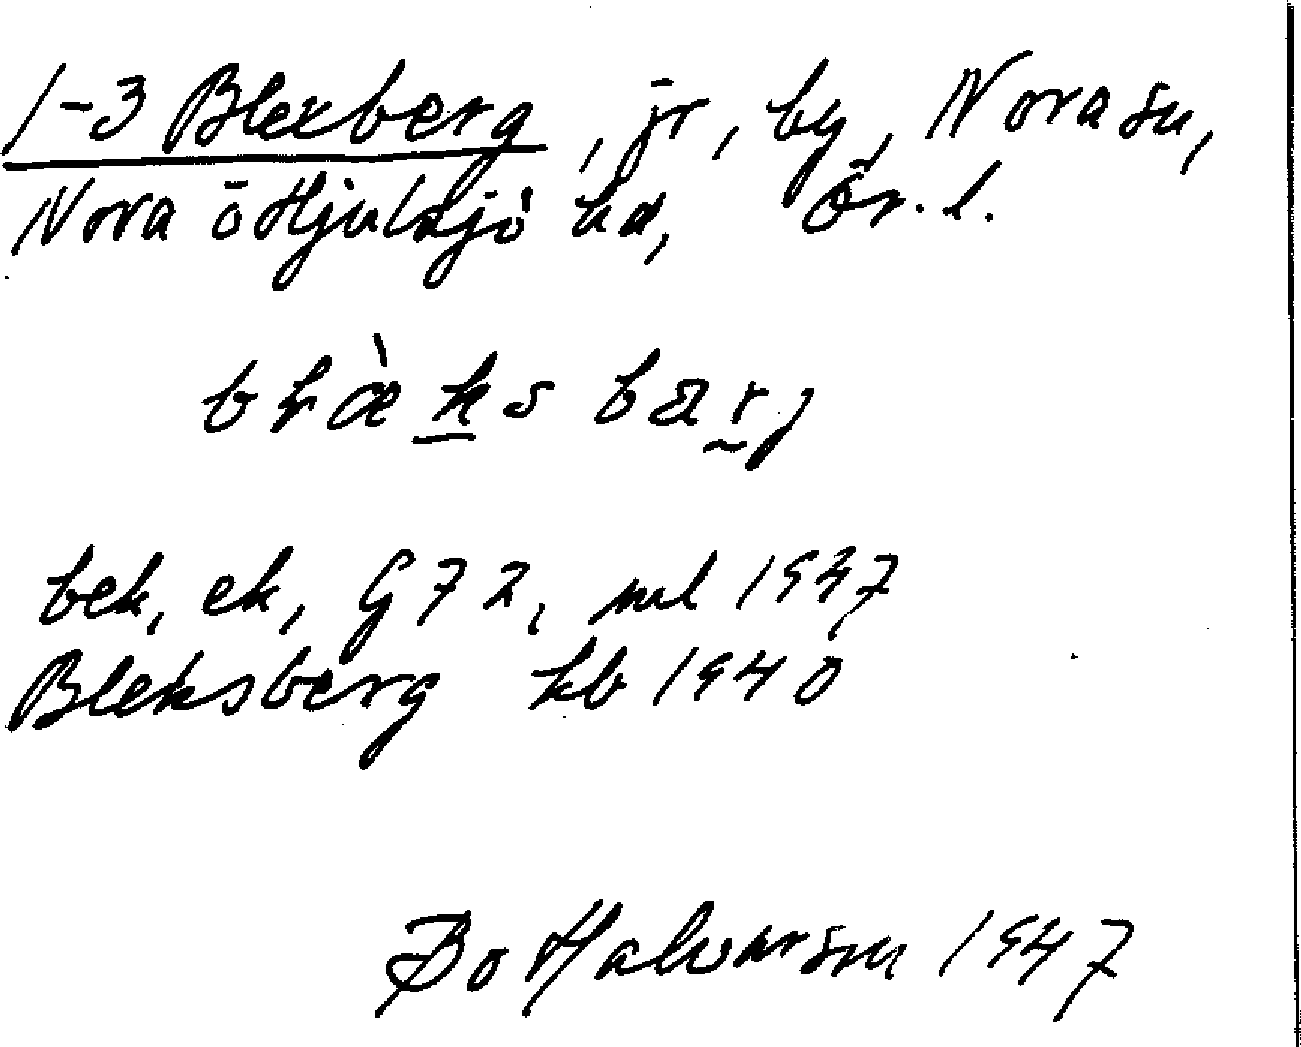 1-3 Blexberg, jr, by, Nora sn,
Nora o Hjulsjö hd, Ör. l.
blæ̀ksbærj
bek, ek, G 72, ml 1937
Bleksberg kb 1940
Bo Halvarson 1947